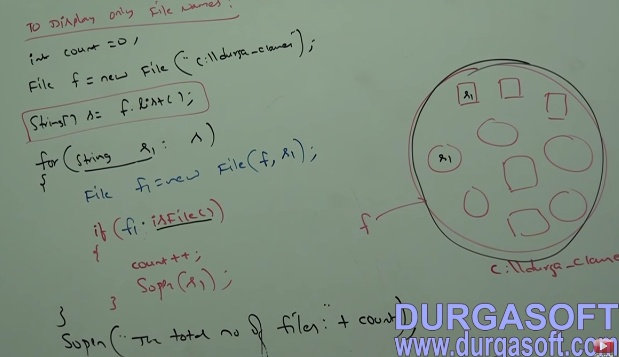 TO Display only File Names:
int count = 0;
File f = new File("c:\\durga_classes");
String[] s = f.list();
for (String s1 : s)
{
File f1 = new File(f, s1);
if (f1.isFile())
{
count++;
Sopln(s1);
}
}
Sopln("The total no of files:" + count)
s1
s1
f
c:\\durga_classe
DURGASOFT
www.durgasoft.com